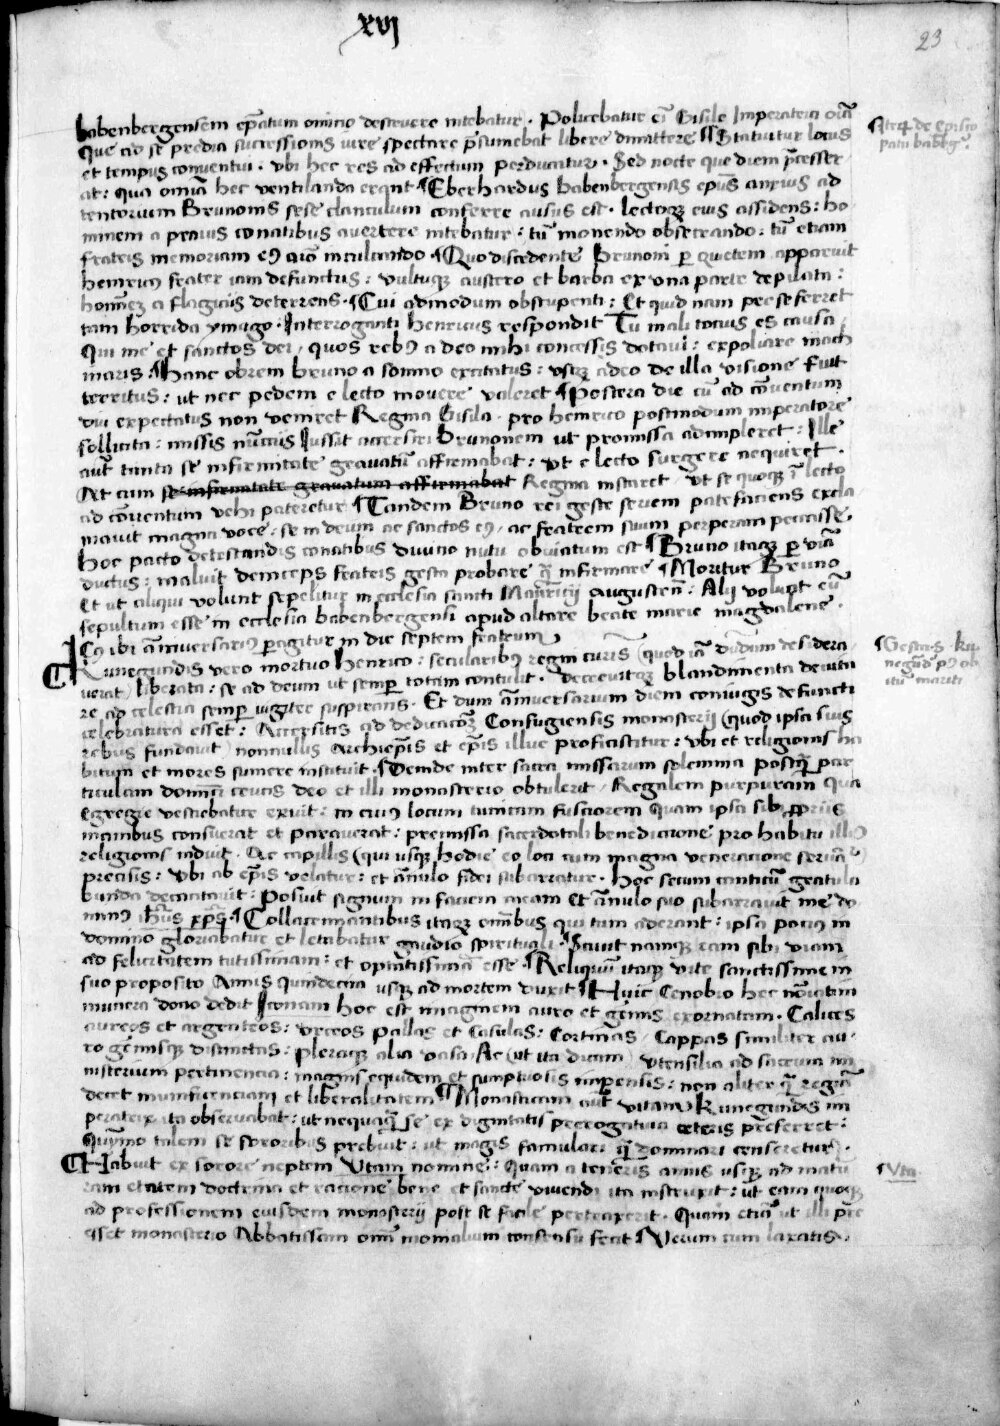 xvj
23
babenbergensem ep̄atum omnino destruere nitebatur · Polliceba­tur em̄ Gisile Imperatrici oīa
¶ Iter̨ de episco
patu babbg̃
Que ad se predia successionis iure spectare p̄sumebat libere dimittere ¶ Statuitur locus
et tempus conuentui · vbi hec res ad effectum perducatur · Sed nocte que diem p̄cesser­
at : qua om̄ia hec ventilanda erant ¶ Eberhardus babenbergensis ep̄us anxius ad
tentorium Brunonis sese clanculum conferre ausus est · lectoqȝ eius assidens : ho
minem a prauis conatibus auertere nitebatur : tū monendo obsecrando : tū etiam
fratris memoriam eiꝰ aīo inculcando ¶ Quo discedente Brunoni ꝑ quietem apparuit
henricus frater iam defunctus : vultuqȝ austero et barba ex vna parte depilata :
homīeȝ a flagiciis deterrens · ¶ Cui admodum obstupenti : Et quid nam pre se ferret
tam horrida ymago · Interroganti henricus respondit Tu mali tocius es causa ·
Qui me et sanctos dei / quos rebꝰ a deo mihi concessis dotaui : expoliare mach
inaris · ¶ Hanc obrem bruno a somno excitatus : vsqȝ adeo de illa visione fuit
territus : ut nec pedem e lecto mouere valeret ¶ Postera die cū ad cōuentum
diu expectatus non veniret Regina Gisila · pro henrico postmodum imperatore
sollicita : missis nūciis Iussit accersiri Brunonem ut promissa adimpleret : Ille
aūt tanta se infirmitate grauatū affirmabat : vt e lecto surgere nequiret ·
At cum se infirmitate grauatum affirmabat Regina instaret / ut se quoqȝ ī lecto
ad cōuentum vehi pateretur ¶ Tandem Bruno rei geste seriem patefaciens excla
mauit magna voce : se in deum ac sanctos eiꝰ · ac fratrem suum perperam peccasse
hoc pacto detestandis conatibus diuino nutu obuiatum est ¶ Bruno itaqȝ ꝑ viā
ductus : maluit deinceps fratris gesta probare q̃ infirmare ¶ Moritur Bruno
Et ut aliqui volunt sepelitur in ecclesia sancti Mauricij Augusten̄ : Alij volunt eū
sepultum esse in ecclesia babenbergensi apud altare beate marie magdalene ·
Eiꝰ ibi āniuersariꝰ ꝑagitur in die septem fratrum
¶ Gesta s Ku
negūd̄ pꝰ ob
itū mariti
Kunegundis vero mortuo henrico : secularibꝰ regni curis (quod iā dudum desidera
uerat) liberata : se ad deum ut semꝑ totam contulit · Decreuitqȝ blandimenta deuita
re ad celestia semper iugiter suspirans · Et dum āniuersarium diem coniugis defuncti
celebratura esset : Accersitis ad dedicacōȝ Confugiensis monasterij (quod ipsa suis
rebus fundauit) nonnullis Archiep̄is et ep̄is illuc proficiscitur : vbi et religionis ha
bitum et mores sumere instituit ¶ Deinde inter sacra missarum solemnia postq̃ par
ticulam dominice crucis deo et illi monasterio obtulerat / Regalem purpuram qua
egregie vestiebatur exuit : in cuius locum tunicam fusciorem quam ipsa sibi ꝓpriis
manibus consuerat et parauerat : premissa sacerdotali benedictione pro habitu illiꝰ
religionis induit · Ac capillis (qui usqȝ hodie eo loci cum magna veneracione seruāt)
precisis : vbi ab ep̄is velatur : et ānulo fidei subarratur · Hoc secum canticū gratula
bunda decantauit : Posuit signum in faciem meam Et ānulo suo subarrauit me do
minꝰ ih̄us xp̄s · ¶ Collacrimantibus itaqȝ omībus qui tum aderant : ipsa pocius in
domino gloriabatur et letabatur gaudio spirituali · ¶ Sciuit namqȝ eam sibi viam
ad felicitatem tutissimam : et optatissimā esse · ¶ Reliquū itaqȝ vite sanctissime in
suo proposito Annis quindecim usqȝ ad mortem duxit ¶ Huic Cenobio hec nōiatim
munera dono dedit Iconam hoc est imaginem auro et gēmis exornatam · Calices
aureos et argenteos : vrceos pallas et Casulas : Cortinas / Cappas similiter au­
ro gēmisqȝ distinctas : pleraqȝ alia vasa Ac (ut ita dicam) vtensilia ad sacrum mi
nisterium pertinencia : magnis equidem et sumptuosis impensis : non aliter q̃ reginā
decet munificenciam et liberalitatem ¶ Monasticam aūt vitam Kunegundis im
peratrix ita obseruabat : ut nequaq̃ se ex dignitatis prerogatiua ceteris preferret :
Quīmo talem se sororibus prebuit : ut magis famulari q̃ dominari censeretur ·
Habuit ex sorore neptem Vtam nomine : Quam a teneris annis usqȝ ad matu
¶ Vta
ram etatem doctrina et racione bene et sancte viuendi ita instruxit : ut eam quoqȝ
ad professionem eiusdem monasterij post se facile pertraxerit · Quam etiā ut illi pre
esset monasterio Abbatissam omī monialium consensu fecit ¶ Verum cum laxatis ·